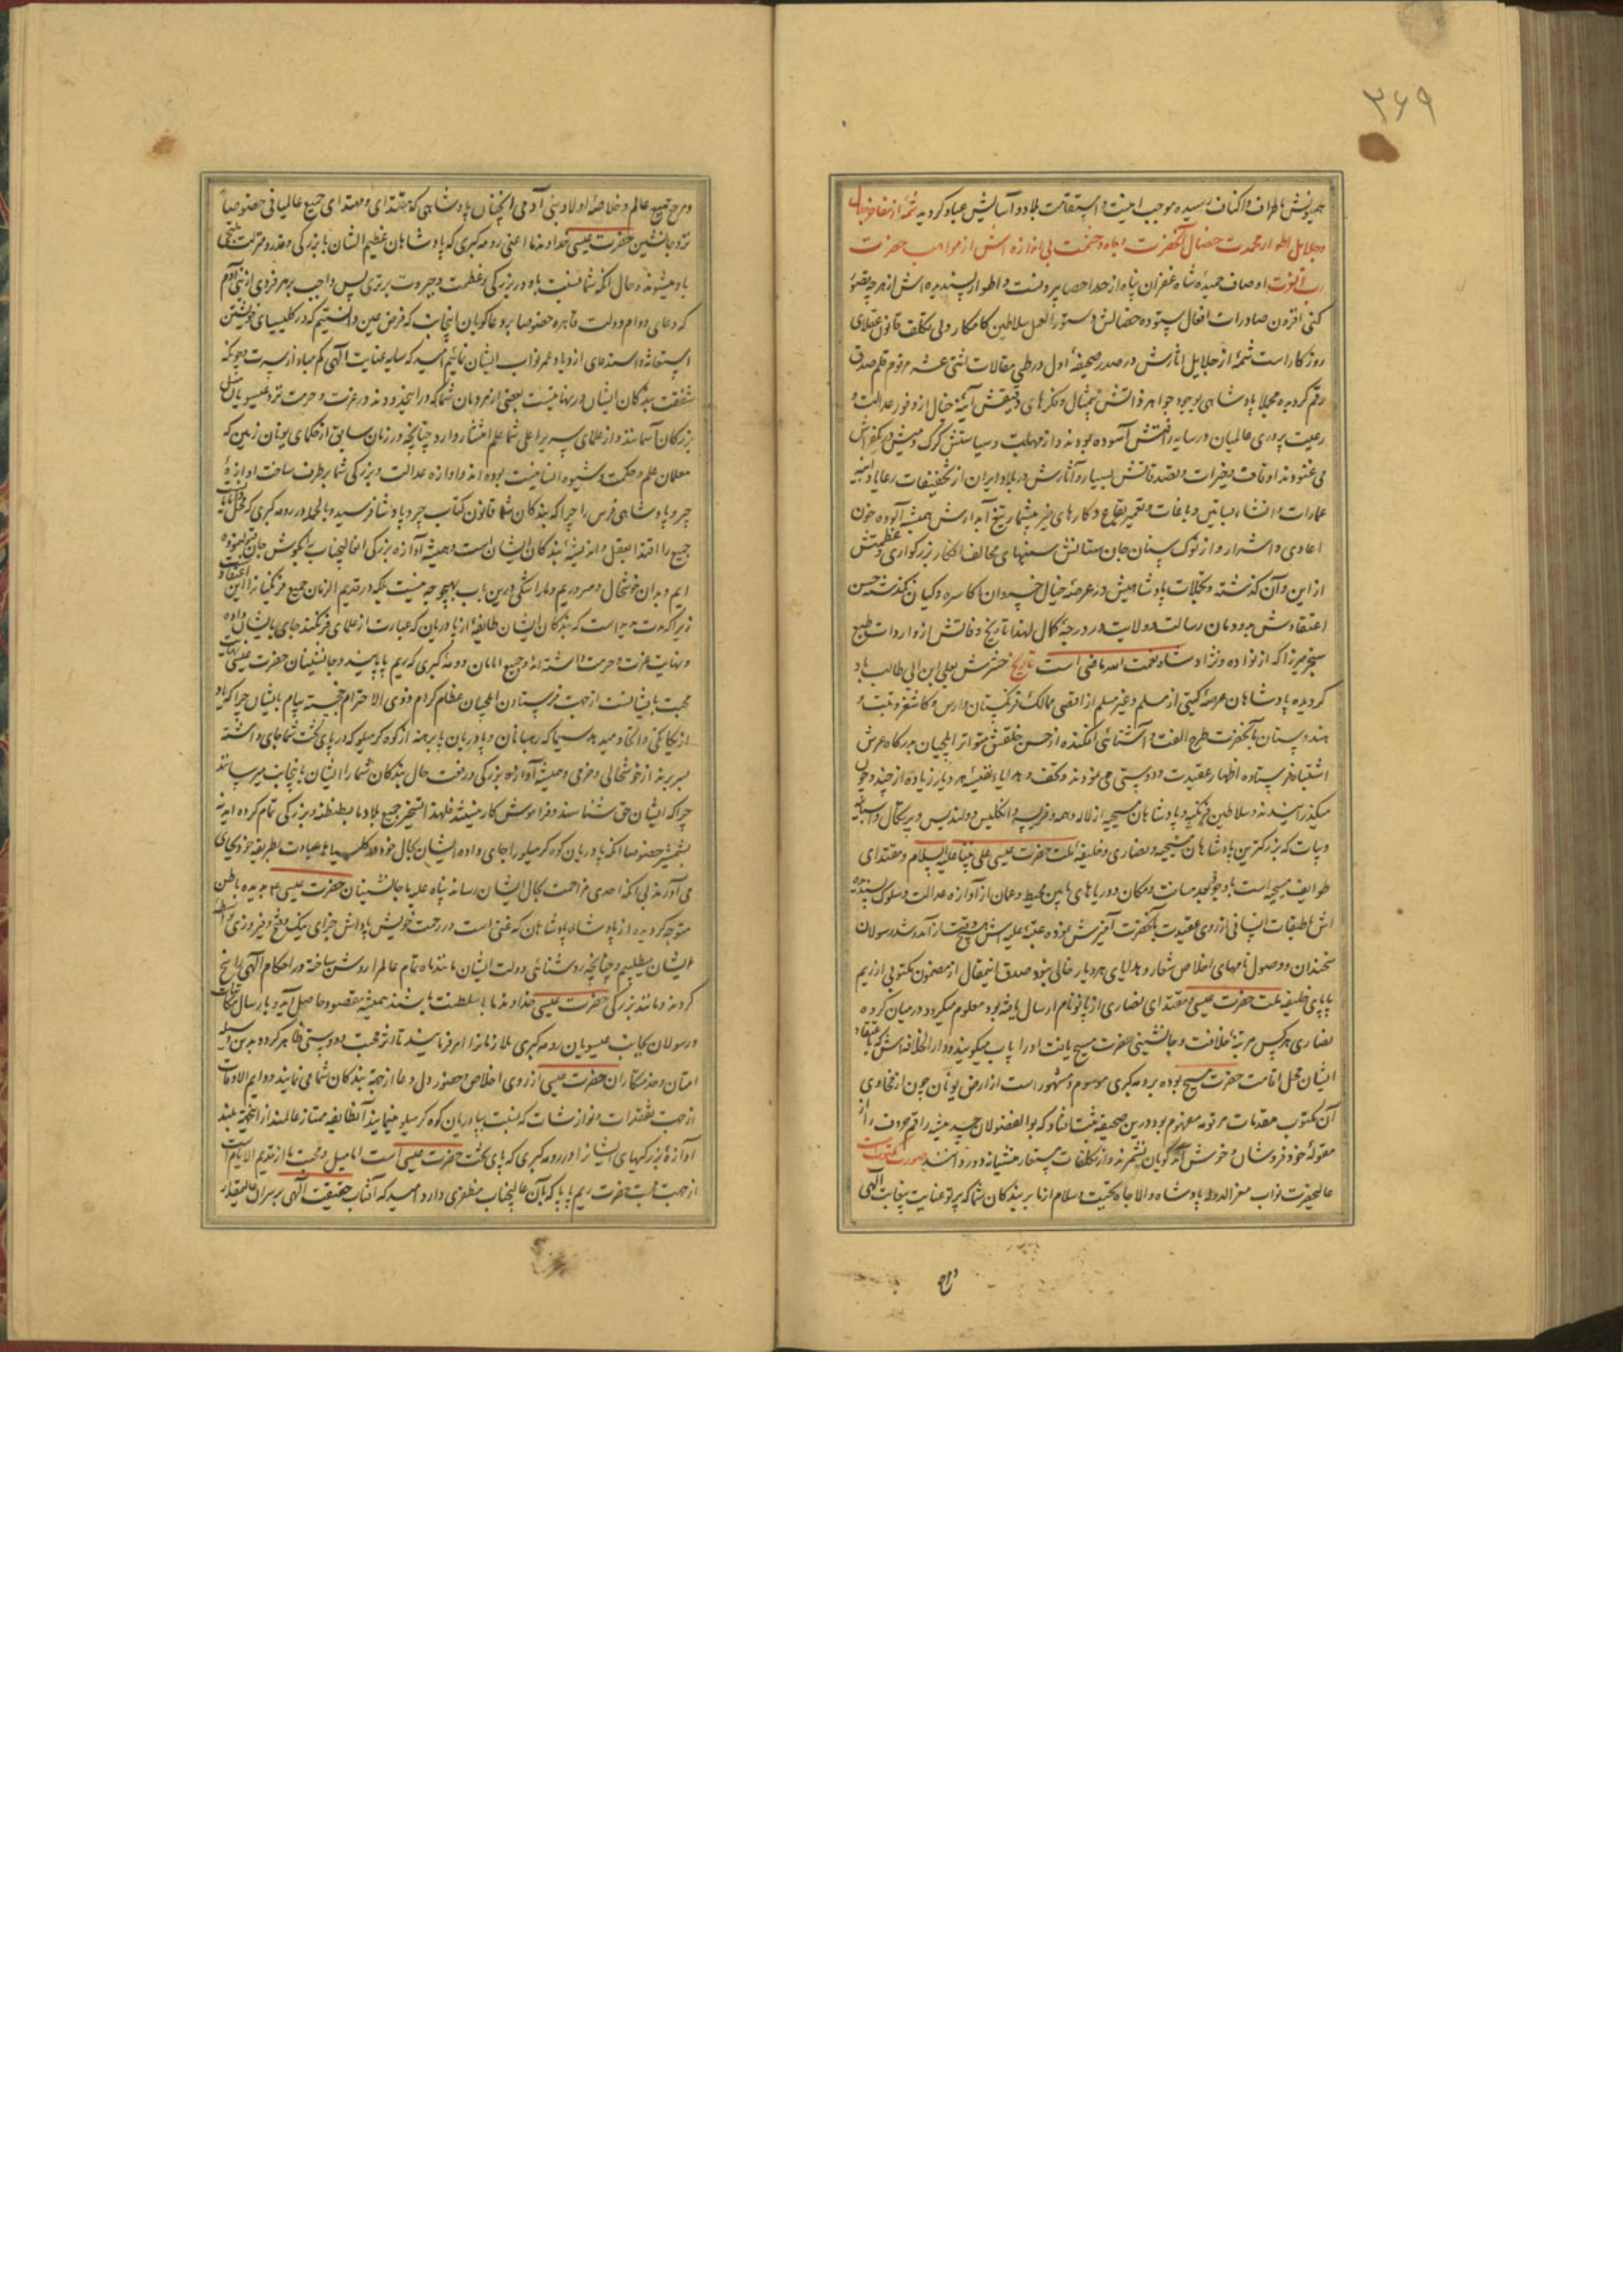 ۳۶۹
همیونش باطراف و اکناف رسیده موجب امنیت و استقامت بلاد و آسایش عباد گردید تتمهٔ از مفاخر
و جلایل اطوار محمدت خصال آنحضرت و جاه و حشمت بی اندازه اش از مواهب حضرت
رب العزت اوصاف حمیدهٔ شاه غفران پناه از حد احصا بیرونست و اطوار پسندیده اش از هرچه تصور
کنی افزون صادرات افعال ستوده خصالش دستور العمل سلاطین کامکار و بی تکلف قانون عقلای
روزکار است شمهٔ از جلایل آثارش در صدر صحیفهٔ اول در طی مقالات اثنی عشر مرقوم قلم صدق
رقم گردیده مجملا پادشاهی بوجود جواهر ذاتش بیمثال و فکرهای دقیقش آینهٔ خیال از وفور عدالت و
رعیت پروری عالمیان در سایه رافتش آسوده بودند و از مهابت و سیاستش گرگ و میش در یکفراش
می غنودند اوقات و خیرات و تصدقاتش بسیار و آثارش در بلاد ایران از تخفیفات رعایا و ابنیه
عمارات و انشاء بساتین و باغات و تعمیر بقاع و کارهای خیر بیشمار تیغ آبدارش همیشه آلوده خون
اعادی و اشرار و از نوک سنان جان ستانش سینهای مخالفان فکار بزرگواری و عظمتش
از این و آن گذشته و تجملات پادشاهیش در عرصهٔ خیال خسروان اکاسره و کیان نگذشته حسن
اعتقادش بدودمان رسالت و ولایت در درجهٔ کمال لهذا تاریخ وفاتش از واردات طبع
سنجر میرزا که از نواده و نژاد شاه نعمت الله ماضی است تاریخ حشرش بعلی ابن ابی طالب باد
گردیده پادشاهان عرصهٔ گیتی از مسلم و غیر مسلم از اقصی ممالک فرنگستان و ارس و کاشغر و تبت و
هندوستان بآنحضرت طرح الفت و آشنائی افکنده از حسن خلقش متواتر ایلچیان بدرگاه عرش
اشتباه فرستاده اظهار عقیدت و دوستی می نمودند و تحف و هدایاء نفیسهٔ هر دیار زیاده از چند و چون
میگذرانیدند و سلاطین فرنگیه و پادشاهان مسیحیه از لاله و همه و فرنسیه و انگلیس و ولندیس و پرتکال و اسبانیه
و پاپ که بزرگترین پادشاهان مسیحیه و نصاری و خلیفهٔ ملت حضرت عیسی علی نبینا علیه السلام و مقتدای
طوایف مسیحیه است با وجود بعد مسافت و مکان و دریاهای مابین محیط و عمان از آوازه عدالت و سلوک پسندیده
اش باطبقات انسانی از روی عقیدت بآنحضرت آمیزش نموده عتبهٔ علیه اش هیچوقت از آمد و شد رسولان
سخندان و وصول نامهای اخلاص شعار و هدایای هر دیار خالی نبود صدق اینمقال از مضمون مکتوبی از ریم
پاپای خلیفه ملت حضرت عیسی و مقتدای نصاری از پاپو نام ارسال یافته بود معلوم میگردد در میان گروه
نصاری هرکس مرتبهٔ خلافت و جانشینی حضرت مسیح یافت او را پاپ میگویند و دار الخلافه اش که باعتقاد
ایشان محل اقامت حضرت مسیح بوده برومه کبری موسوم و مشهور است از ارض یونان چون از فحاوی
آن مکتوب مقدمات مرقومه مفهوم بود درین صحیفه ثبت افتاد که بوالفضولان حسد پیشه راقم حروف را از
مقولهٔ خود فروشان و خوش آمد گویان نشمرند و از تکلفات مستعار منشیانه دور دانند صورت مکتوب
عالیحضرت نواب معز الدوله پادشاه والاجاه تحیت و سلام از ما بر بندکان شما که پرتو عنایت بیغایت الهی
و مرجع جمیع عالم و خلاصهٔ اولاد بنی آدمی آنچنان پادشاهی که مقتدای و مهتدای جمیع عالمیانی خصوصا
نزد جانشین حضرت عیسی خداوند ما اعنی رومه کبری که پادشاهان عظیم الشان با بزرگی و قدر و منزلت
یاد میشوند و حال آنکه شما نسبت باو در بزرگی و عظمت و جبروت برتری پس واجب بر هر فردی از بنی آدم
که دعای دوام دولت قاهره خصوصا بر دعاگویان اینجانب که فرض عین دانستیم که در کلیسیای خویشتن
استغاثه و استدعای ازدیاد عمر نواب ایشان نمائیم امید که سایه عنایت الهی کم مباد از سرت و چونکه
شفقت بندکان ایشان در نهایتست بعضی از مردمان شما که در اینحدودند در عزت و حرمت نزد عیسویان مثل
بزرکان آسمانند و از علمای سریرا علی شما علم انتشار دارد چنانچه در زمان سابق از حکمای یونان زمین که
معلمان علم و حکمت و شیوه انسانیت بوده اند و آوازه عدالت و بزرگی شما برطرف ساخت آوازهٔ
جر و پادشاهی فرس را چرا که بندکان شما قانون کتاب جر و پادشا فرسید و بالجمله در رومه کبری که محل
جمیع را اقتدا بعقل و اندیشهٔ بندکان ایشان است و همیشه آوازه بزرگی آنعالیجناب را بگوش جان شنوده
ایم و بدان خوشحال و مسروریم و ما را شکی درین باب بهیچ وجه نیست بلکه در قدیم الزمان جمیع فرنگیانرا این اعتقاد
زیرا که مدت مدید است که بندکان ایشان طایفهٔ از پادریان که عبارت از علمای فرنگند جای بایشان داده
و نهایت عزت و حرمت داشته اند و جمیع امامان رومه کبری که ریم پاپایند و جانشینان حضرت عیسی
محبت بایشانست از جهت فرستادن ایلچیان عظام کرام ذوی الاحترام خجسته پیام بایشان چرا که زیاد
از یکانگی و اتحاد میدهد سیما که رهبانان و پادریان پا برهنه از کوه کرمیلو که در پای تخت شما جای داشته
بسر برند از خوشحالی و خرمی و همیشه آوازه بزرگی و رفعت حال بندکان شما را ایشان باینجانب میرسانند
چرا که ایشان حق شناسند و فراموش کار نیستند فلهذا تسخیر جمیع بلاد ما بطنطنه و بزرگی تمام کرده اید نه
بشمشیر خصوصا آنکه پادریان کوه کرمیلو را جای داده ایشان بحال خود در کلیسیاها عبادت بطریقه خود بجای
می آورند بی آنکه احدی مزاحمت بحال ایشان رساند پناه علیه یا جانشینان حضرت عیسی ما بدیده باطن
متوجه گردیده از پادشاه پادشاهان که غنی است در رحمت خویش پاداش جزای نیک و فتح و فیروزی
ایشان میطلبیم و چنانچه روشنائی دولت ایشان مانند ماه تمام عالم را روشن ساخته در احکام الهی راسخ
گردند و مانند بزرگی حضرت عیسی خداوند ما با سلطنت باشند همیشه مقصود حاصل آید و بارسال مکاتبات
و رسولان بجانب عیسویان رومه کبری ملازمانرا امر فرمایند تا اثر محبت و دوستی ظاهر گردد بدین وسیله
امتان و خدمتکاران حضرت عیسی از روی اخلاص و حضور دل دعا از جهة بندکان شما می نمایند دوایم الاوقات
از جهت تفقدات و نوازشات که نسبت بپادریان کوه کرمیلو مینمایید آنطایفه ممتاز عالمند از اینجهة بلند
آوازهٔ بزرکیهای ایشانرا در رومه کبری که پای تخت حضرت عیسی است اما میل و محبت ما از قدیم الایام است
از جهت محبت حضرت ریم پاپا که بآن عالیجناب منظوری دارد امید که آفتاب حقیقت الهی بر سر آن عالیمقدار